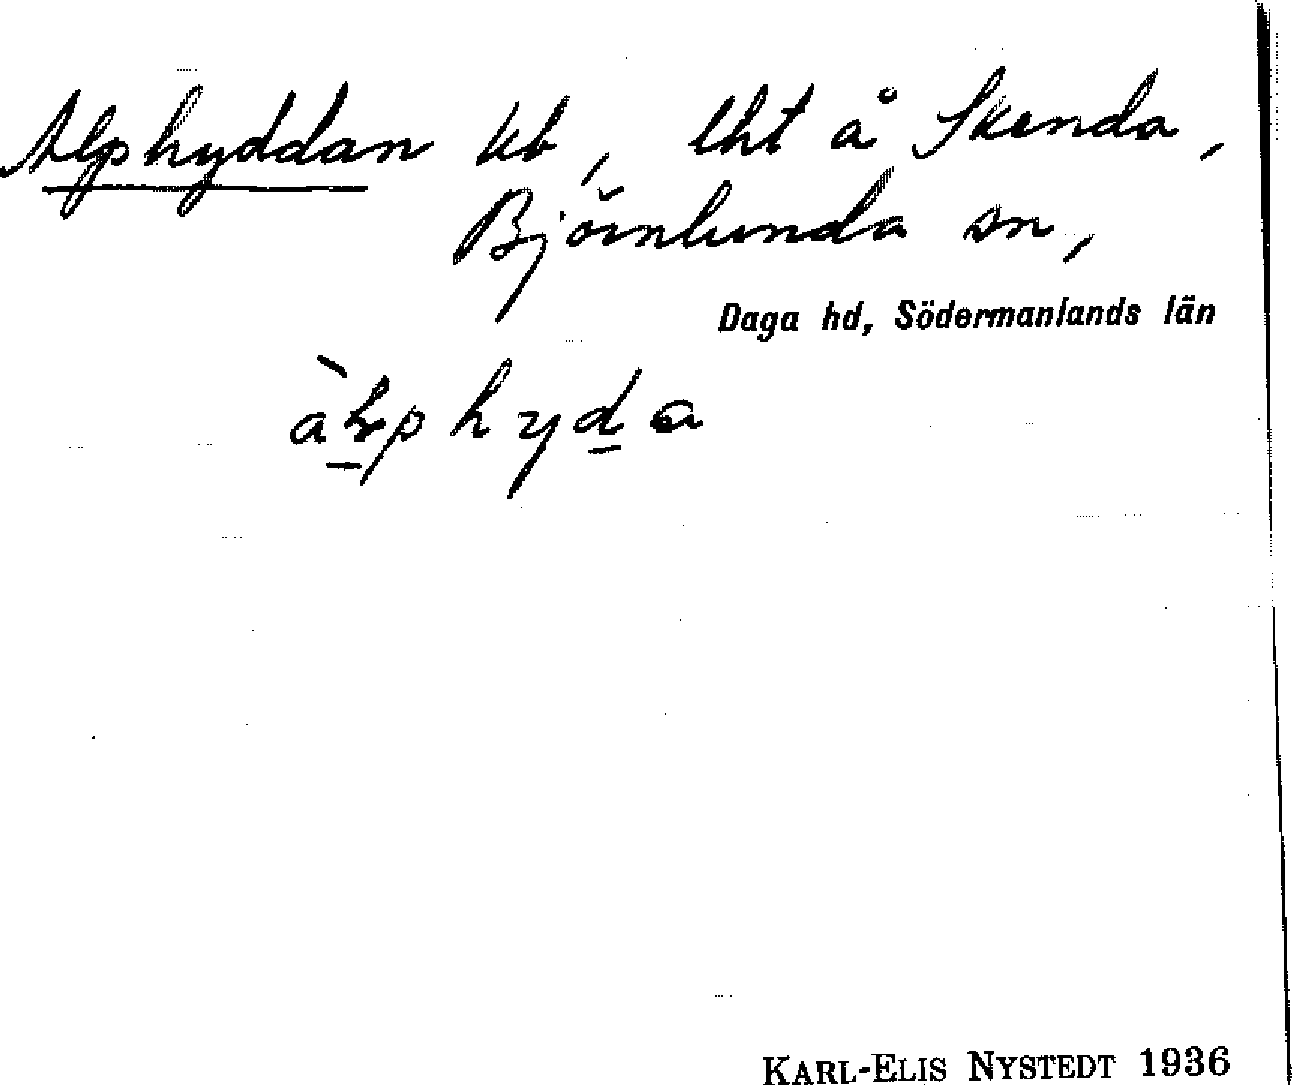 Alphyddan kb, lht å Skenda,
Björnlunda sn,
Daga hd, Södermanlands län
KARL-ELIS NYSTEDT 1936